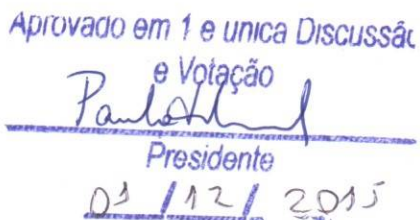 Aprovado em 1 e unica Discussão
e Votação
Presidente
01 / 12 / 2015